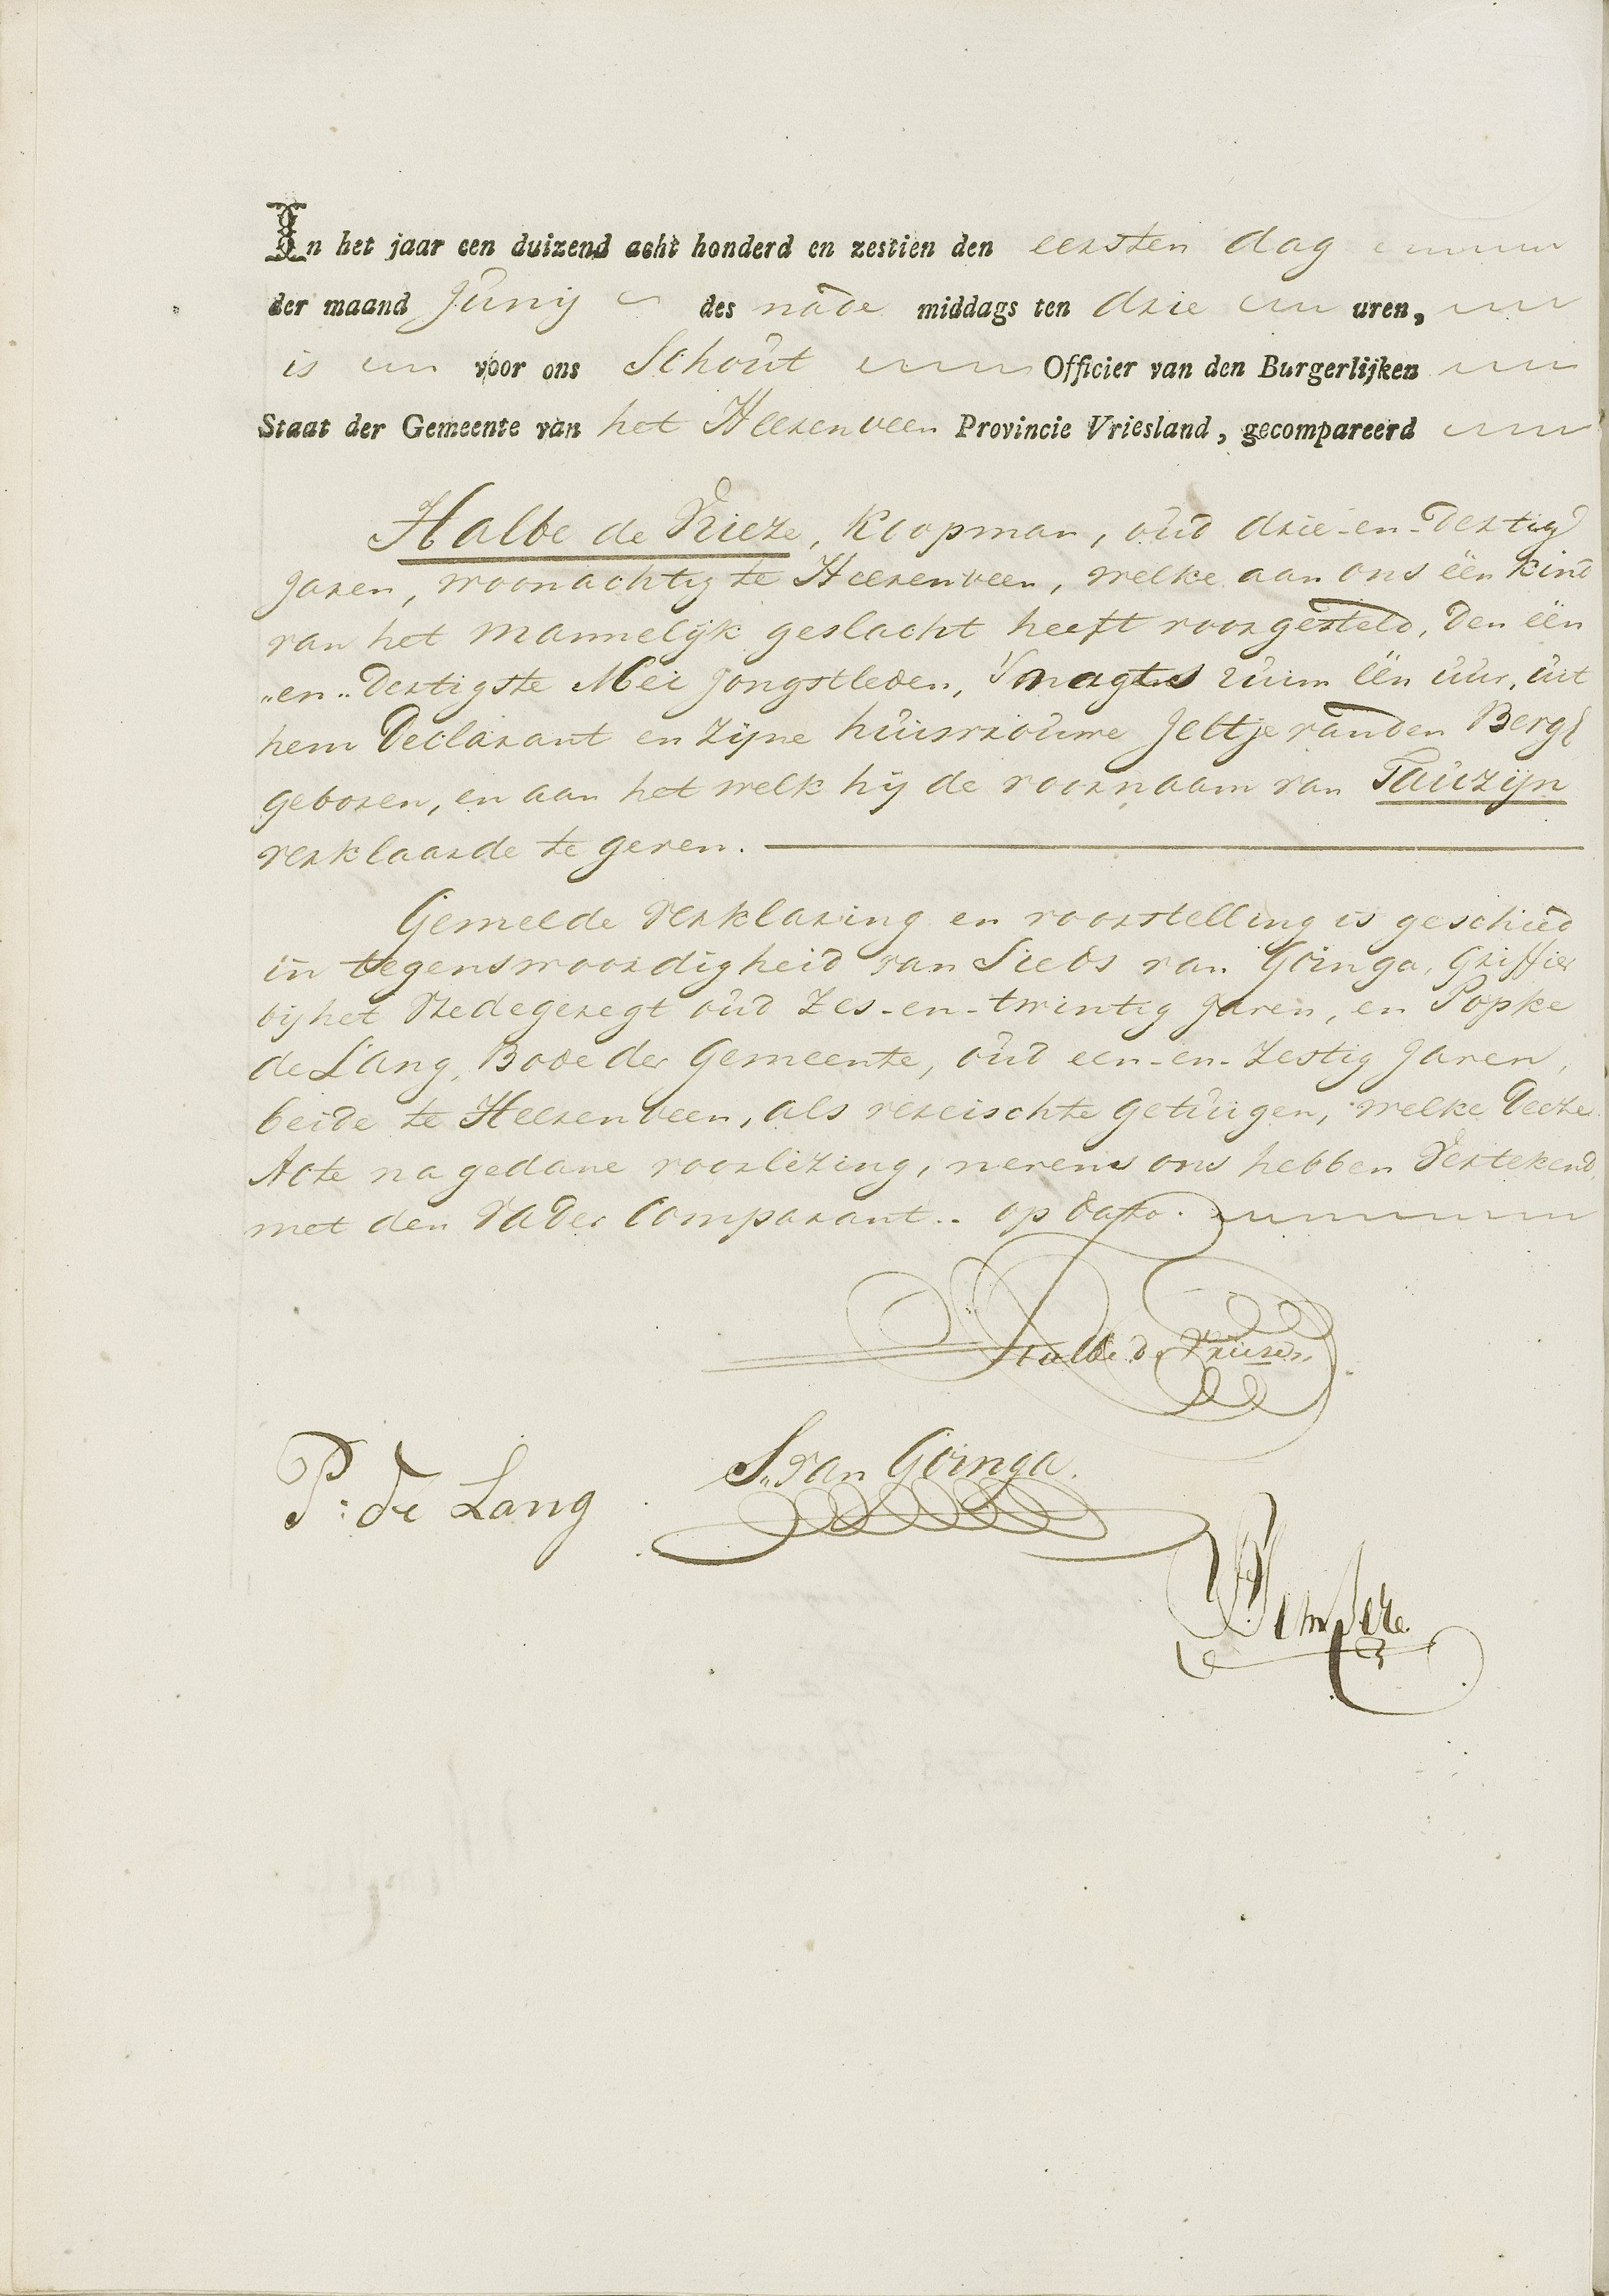 In het jaar een duizend acht honderd en zestien den eersten dag
der maand Junij des nade middags ten drie uren,
is voor ons Schout Officier van den Burgerlijken
Staat der Gemeente van het Heerenveen Provincie Vriesland, gecompareerd
Halbe de Vrieze, Koopman, oud drie-en-dertig
Jaren, woonachtig te Heerenveen, welke aan ons één kind
van het mannelijk geslacht heeft voorgesteld, den één
„en„ dertigste Mei jongstleden, 's nagts ruim één uur, uit
hem Declarant en zijne huisvrouwe Jeltje van den Berg
geboren, en aan het welk hij de voornaam van Tauzijn
verklaarde te geven.
Gemelde verklaring en voorstelling is geschied
in tegenswoordigheid van Sieds van Goinga, Griffier
bij het Vredegeregt oud zes-en-twintig jaren, en Popke
de Lang, Bode der Gemeente, oud een-en-zestig Jaren,
beide te Heerenveen, als vereischte getuigen, welke deeze
Acte na gedane voorlezing, nevens ons hebben vertekend,
met den Vader Comparant.. op dato.
Halbe de Vrieze
S„ van Goinga.
P: de Lang